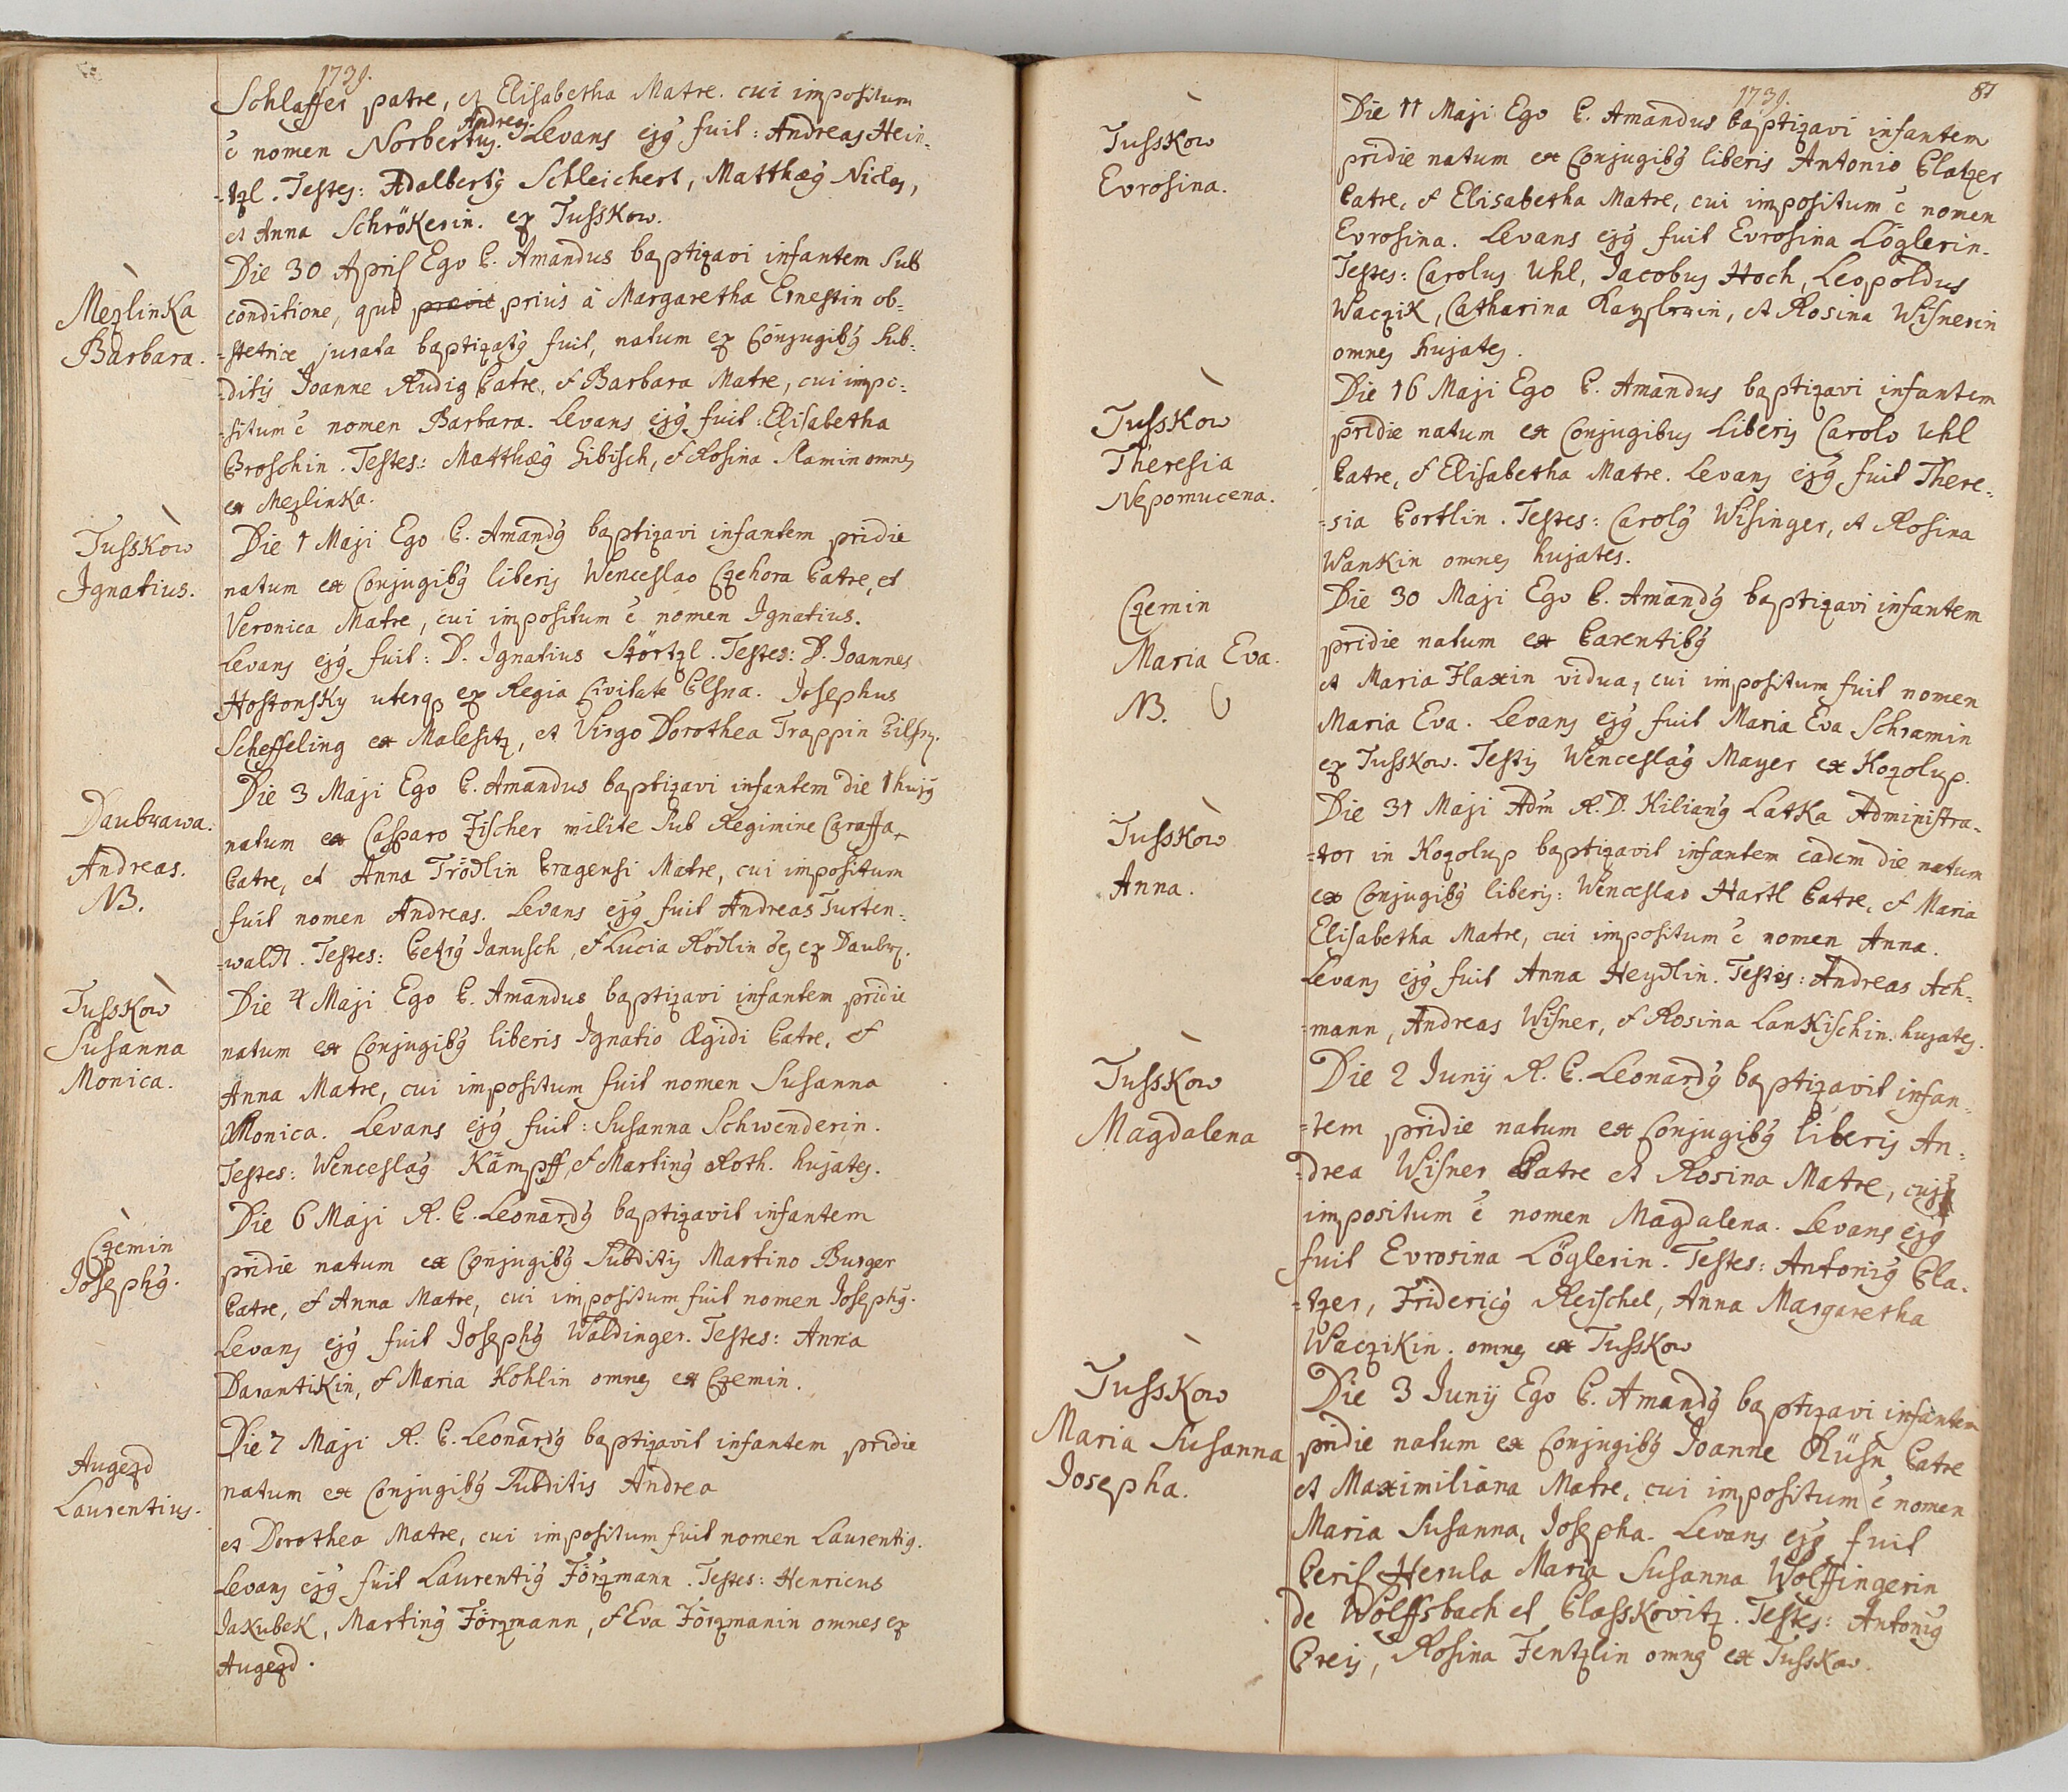 1739.
Schlaffer patre, et Elisabetha Matre. cui impositum
ē nomen Norbertus. Andreas. Levans ejg fuit: Andreas Hein-
-tzl. Testes: Adalbertg Schleichert, Matthæg Niclas,
et Anna Schrökerin. ex Tusskow.
Mezlinka
Barbara.
Die 30 April Ego P. Amandus baptizavi infantem sub
conditione, quod prævie prius à Margaretha Ernestin ob-
-stetrice jurata baptizatg fuit, natum ex Conjugibg sub-
-ditis Joanne Rudig Patre, et Barbara Matre, cui impo-
-situm ē nomen Barbara. Levans ejg fuit: Elisabetha
Proschin. Testes: Matthæg Libisch, et Rosina Ramin omnes
ex Mezlinka.
Tusskow
Ignatius.
Die 1 Maji Ego P. Amandg baptizavi infantem pridie
natum ex Conjugibg liberis Wenceslao Czehora Patre, et
Veronica Matre, cui impositum ē nomen Ignatius.
Levans ejg fuit: D. Ignatius Störtzl. Testes: D. Joannes
Hostonsky uterq ex Regia Civitate Plsna. Josephus
Scheffeling ex Malesitz, et Virgo Dorothea Trappin Pilsn.
Daubrawa.
Andreas.
NB.
Die 3 Maji Ego P. Amandus baptizavi infantem die 1 hujg
natum ex Casparo Fischer milite sub Regimine Caraffa
Patre, et Anna Trödlin Pragensi Matre, cui impositum
fuit nomen Andreas. Levans ejg fuit Andreas Turten-
-waldt. Testes: Petrg Janusch, et Lucia Rödlin oēs ex Daubr.
Tusskow
Susanna
Monica.
Die 4 Maji Ego P. Amandus baptizavi infantem pridie
natum ex Conjugibg liberis Ignatio Ægidi Patre, et
Anna Matre, cui impositum fuit nomen Susanna
Monica. Levans ejg fuit: Susanna Schwenderin.
Testes: Wenceslag Kämpff, et Marting Roth. hujates.
Czemin
Josephg.
Die 6 Maji R. P. Leonardg baptizavit infantem
pridie natum ex Conjugibg Subditis Martino Burger
Patre, et Anna Matre, cui impositum fuit nomen Josephg.
Levans ejg fuit Josephg Waldinger. Testes: Anna
Darantikin, et Maria Kohlin omnes ex Czemin.
Augezd
Laurentius.
Die 7 Maji R. P. Leonardg baptizavit infantem pridie
natum ex Conjugibg Subditis Andrea
et Dorothea Matre, cui impositum fuit nomen Laurentig.
Levans ejg fuit Laurentig Förzmann. Testes: Henricus
Jakubek, Marting Förzmann, et Eva Förzmanin omnes ex
Augezd.
1739.
81
Tusskow
Evrosina.
Die 11 Maji Ego P. Amandus baptizavi infantem
pridie natum ex Conjugibg liberis Antonio Platzer
Patre, et Elisabetha Matre, cui impositum ē nomen
Evrosina. Levans ejg fuit Evrosina Löglerin.
Testes: Carolus Uhl, Jacobus Hoch, Leopoldus
Waczik, Catharina et Rosina Wisnerin
omnes hujates.
Tusskow
Theresia
Nepomucena.
Die 16 Maji Ego P. Amandus baptizavi infantem
pridie natum ex Conjugibus liberis Carolo Uhl
Patre, et Elisabetha Matre. Levans ejg fuit There-
-sia Portlin. Testes: Carolg Wisinger, et Rosina
Wankin omnes hujates.
Czemin
Maria Eva.
NB.
Die 30 Maji Ego P. Amandg baptizavi infantem
pridie natum ex Parentibg
et Maria Flaxin vidua, cui impositum fuit nomen
Maria Eva. Levans ejg fuit Maria Eva Schramin
ex Tusskow. Testis Wenceslag Mayer ex Kozolup.
Tusskow
Anna.
Die 31 Maji Adm̄ R. D. Kiliang Latka Administra-
-tor in Kozolup baptizavit infantem eadem die natum
ex Conjugibg liberis: Wenceslao Hartl Patre, et Maria
Elisabetha Matre, cui impositum ē nomen Anna.
Levans ejg fuit Anna Heydlin. Testes: Andreas Ach-
-mann, Andreas Wisner, et Rosina Lankischin. hujates.
Tusskow
Magdalena
Die 2 Junij R. P. Leonardg baptizavit infan-
-tem pridie natum ex Conjugibg liberis An-
-drea Wisner Patre et Rosina Matre, cuj
impositum ē nomen Magdalena. Levans ejg
fuit Evrosina Löglerin. Testes: Antonig Pla-
-tzer, Fridericg Reischel, Anna Margaretha
Waczikin. omnes ex Tusskow
Tusskow
Maria Susanna
Josepha.
Die 3 Junij Ego P. Amandg baptizavi infantem
pridie natum ex Conjugibg Joanne Rühn Patre
et Maximiliana Matre, cui impositum ē nomen
Maria Susanna, Josepha. Levans ejg fuit
Peril Herula Maria Susanna Wolffingerin
de Wolffsbach et Plasskovitz. Testes: Antonig
Preis, Rosina Fentzlin omnes ex Tusskow.